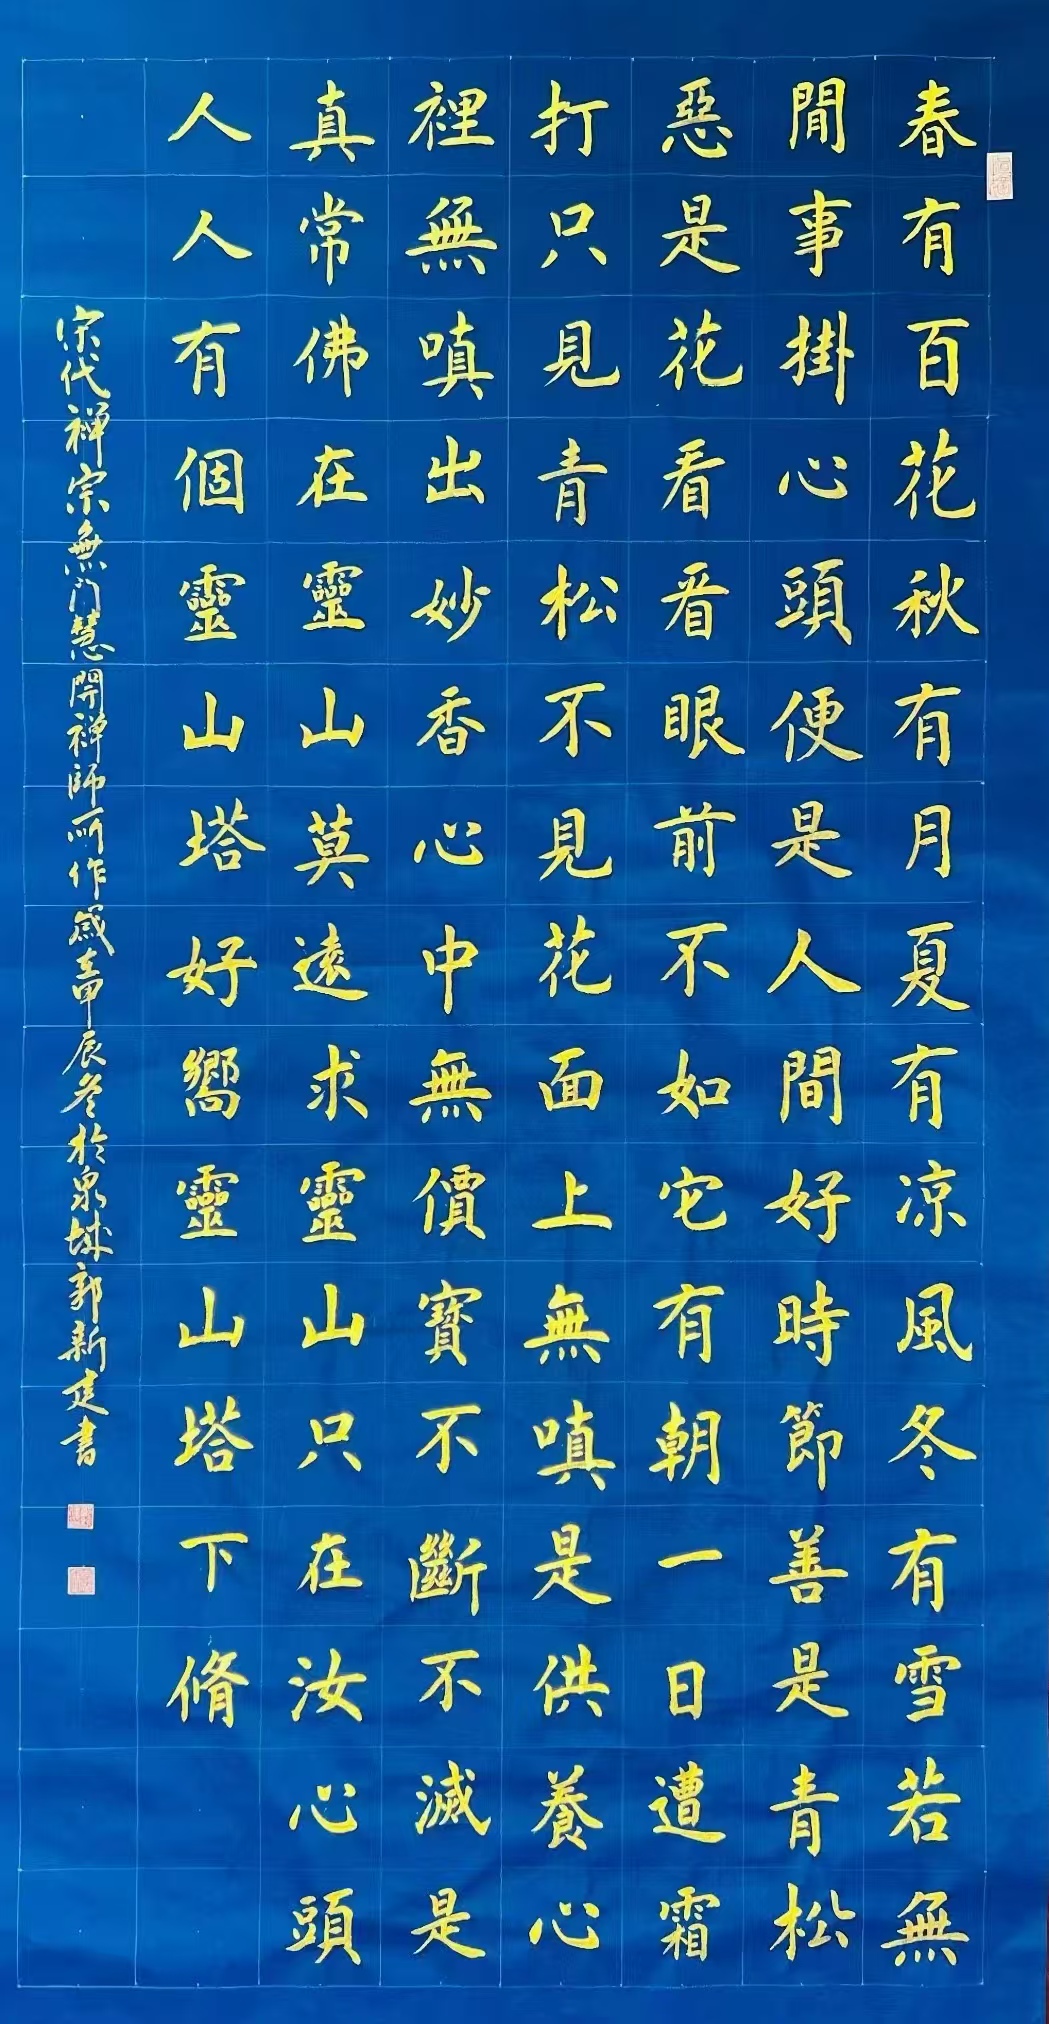 春有百花秋有月夏有凉風冬有雪若無
閒事掛心頭便是人間好時節善是青松
惡是花看看眼前不如它有朝一日遭霜
打只見青松不見花面上無嗔是供養心
裡無嗔出妙香心中無價寶不斷不滅是
真常佛在靈山莫遠求靈山只在汝心頭
人人有個靈山塔好嚮靈山塔下脩
宋代禅宗無门慧開禅師所作歲在甲辰冬於泉城郭新建書